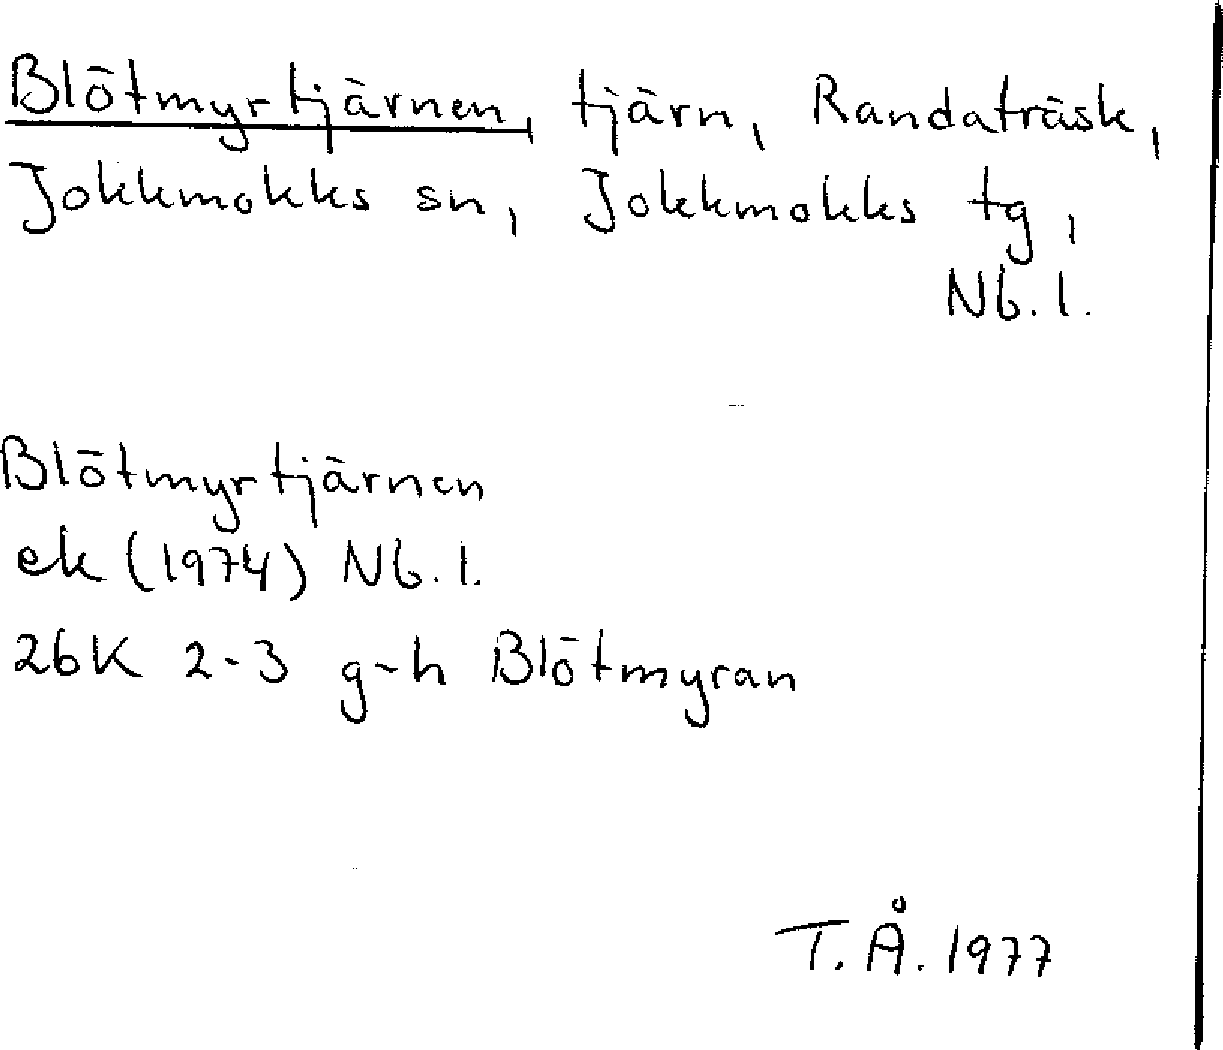 Blötmyrtjärnen, tjärn, Randaträsk,
Jokkmokks sn, Jokkmokks tg,
Nb. l.
Blötmyrtjärnen
ek (1974) Nb. l.
26K 2-3 g-h Blötmyran
T. Å. 1977